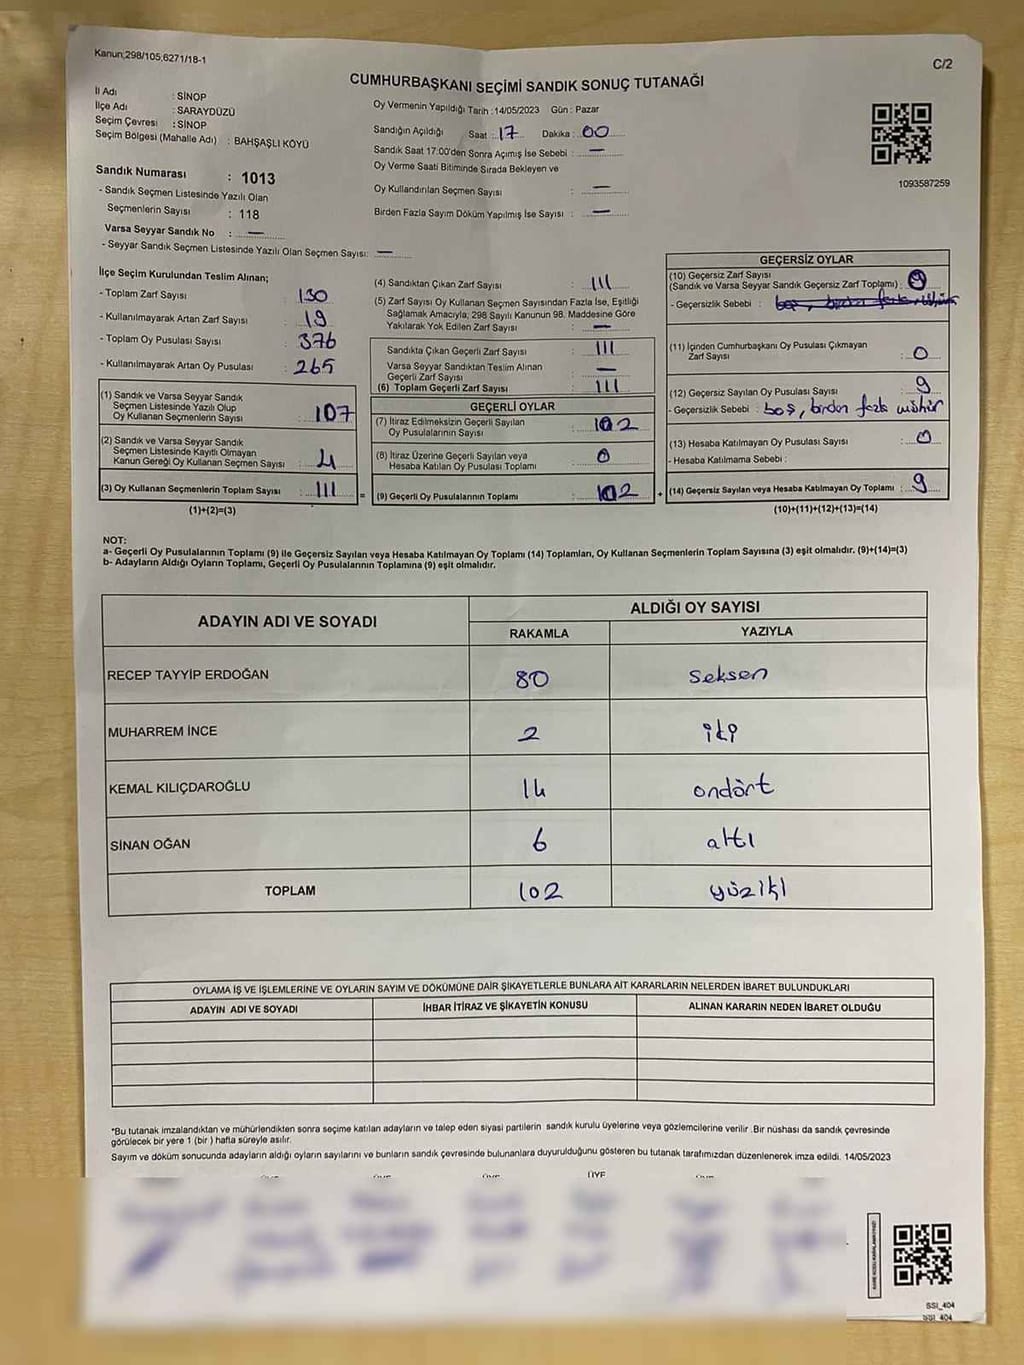 Kanun;298/105,6271/18-1
C/2
CUMHURBAŞKANI SEÇİMİ SANDIK SONUÇ TUTANAĞI
İl Adı : SİNOP
İlçe Adı : SARAYDÜZÜ
Seçim Çevresi : SİNOP
Seçim Bölgesi (Mahalle Adı) : BAHŞAŞLI KÖYÜ
Oy Vermenin Yapıldığı Tarih :14/05/2023 Gün : Pazar
Sandığın Açıldığı Saat : 17 Dakika : 00
Sandık Saat 17:00'den Sonra Açımış İse Sebebi : —
Oy Verme Saati Bitiminde Sırada Bekleyen ve
Oy Kullandırılan Seçmen Sayısı : —
Birden Fazla Sayım Döküm Yapılmış İse Sayısı : —
1093587259
Sandık Numarası : 1013
- Sandık Seçmen Listesinde Yazılı Olan
Seçmenlerin Sayısı : 118
Varsa Seyyar Sandık No : —
- Seyyar Sandık Seçmen Listesinde Yazılı Olan Seçmen Sayısı: —
İlçe Seçim Kurulundan Teslim Alınan;
- Toplam Zarf Sayısı : 130
- Kullanılmayarak Artan Zarf Sayısı : 19
- Toplam Oy Pusulası Sayısı : 376
- Kullanılmayarak Artan Oy Pusulası : 265
(1) Sandık ve Varsa Seyyar Sandık
Seçmen Listesinde Yazılı Olup
Oy Kullanan Seçmenlerin Sayısı : 107
(2) Sandık ve Varsa Seyyar Sandık
Seçmen Listesinde Kayıtlı Olmayan
Kanun Gereği Oy Kullanan Seçmen Sayısı : 4
(3) Oy Kullanan Seçmenlerin Toplam Sayısı : 111 =
(1)+(2)=(3)
(4) Sandıktan Çıkan Zarf Sayısı : 111
(5) Zarf Sayısı Oy Kullanan Seçmen Sayısından Fazla İse, Eşitliği
Sağlamak Amacıyla; 298 Sayılı Kanunun 98. Maddesine Göre
Yakılarak Yok Edilen Zarf Sayısı : —
Sandıkta Çıkan Geçerli Zarf Sayısı : 111
Varsa Seyyar Sandıktan Teslim Alınan
Geçerli Zarf Sayısı : —
(6) Toplam Geçerli Zarf Sayısı : 111
GEÇERLİ OYLAR
(7) İtiraz Edilmeksizin Geçerli Sayılan
Oy Pusulalarının Sayısı : 102
(8) İtiraz Üzerine Geçerli Sayılan veya
Hesaba Katılan Oy Pusulası Toplamı : 0
(9) Geçerli Oy Pusulalarının Toplamı : 102 +
GEÇERSİZ OYLAR
(10) Geçersiz Zarf Sayısı
(Sandık ve Varsa Seyyar Sandık Geçersiz Zarf Toplamı) :
- Geçersizlik Sebebi : boş, birden fazla mühür
(11) İçinden Cumhurbaşkanı Oy Pusulası Çıkmayan
Zarf Sayısı : 0
(12) Geçersiz Sayılan Oy Pusulası Sayısı : 9
- Geçersizlik Sebebi : boş, birden fazla mühür
(13) Hesaba Katılmayan Oy Pusulası Sayısı : 0
- Hesaba Katılmama Sebebi :
(14) Geçersiz Sayılan veya Hesaba Katılmayan Oy Toplamı : 9
(10)+(11)+(12)+(13)=(14)
NOT:
a- Geçerli Oy Pusulalarının Toplamı (9) ile Geçersiz Sayılan veya Hesaba Katılmayan Oy Toplamı (14) Toplamları, Oy Kullanan Seçmenlerin Toplam Sayısına (3) eşit olmalıdır. (9)+(14)=(3)
b- Adayların Aldığı Oyların Toplamı, Geçerli Oy Pusulalarının Toplamına (9) eşit olmalıdır.
ADAYIN ADI VE SOYADI
ALDIĞI OY SAYISI
RAKAMLA YAZIYLA
RECEP TAYYİP ERDOĞAN 80 seksen
MUHARREM İNCE 2 iki
KEMAL KILIÇDAROĞLU 14 ondört
SİNAN OĞAN 6 altı
TOPLAM 102 yüziki
OYLAMA İŞ VE İŞLEMLERİNE VE OYLARIN SAYIM VE DÖKÜMÜNE DAİR ŞİKAYETLERLE BUNLARA AİT KARARLARIN NELERDEN İBARET BULUNDUKLARI
ADAYIN ADI VE SOYADI İHBAR İTİRAZ VE ŞİKAYETİN KONUSU ALINAN KARARIN NEDEN İBARET OLDUĞU
*Bu tutanak imzalandıktan ve mühürlendikten sonra seçime katılan adayların ve talep eden siyasi partilerin sandık kurulu üyelerine veya gözlemcilerine verilir .Bir nüshası da sandık çevresinde
görülecek bir yere 1 (bir ) hafta süreyle asılır.
Sayım ve döküm sonucunda adayların aldığı oyların sayılarını ve bunların sandık çevresinde bulunanlara duyurulduğunu gösteren bu tutanak tarafımızdan düzenlenerek imza edildi. 14/05/2023
ÜYE
SSİ_404
SSİ_404